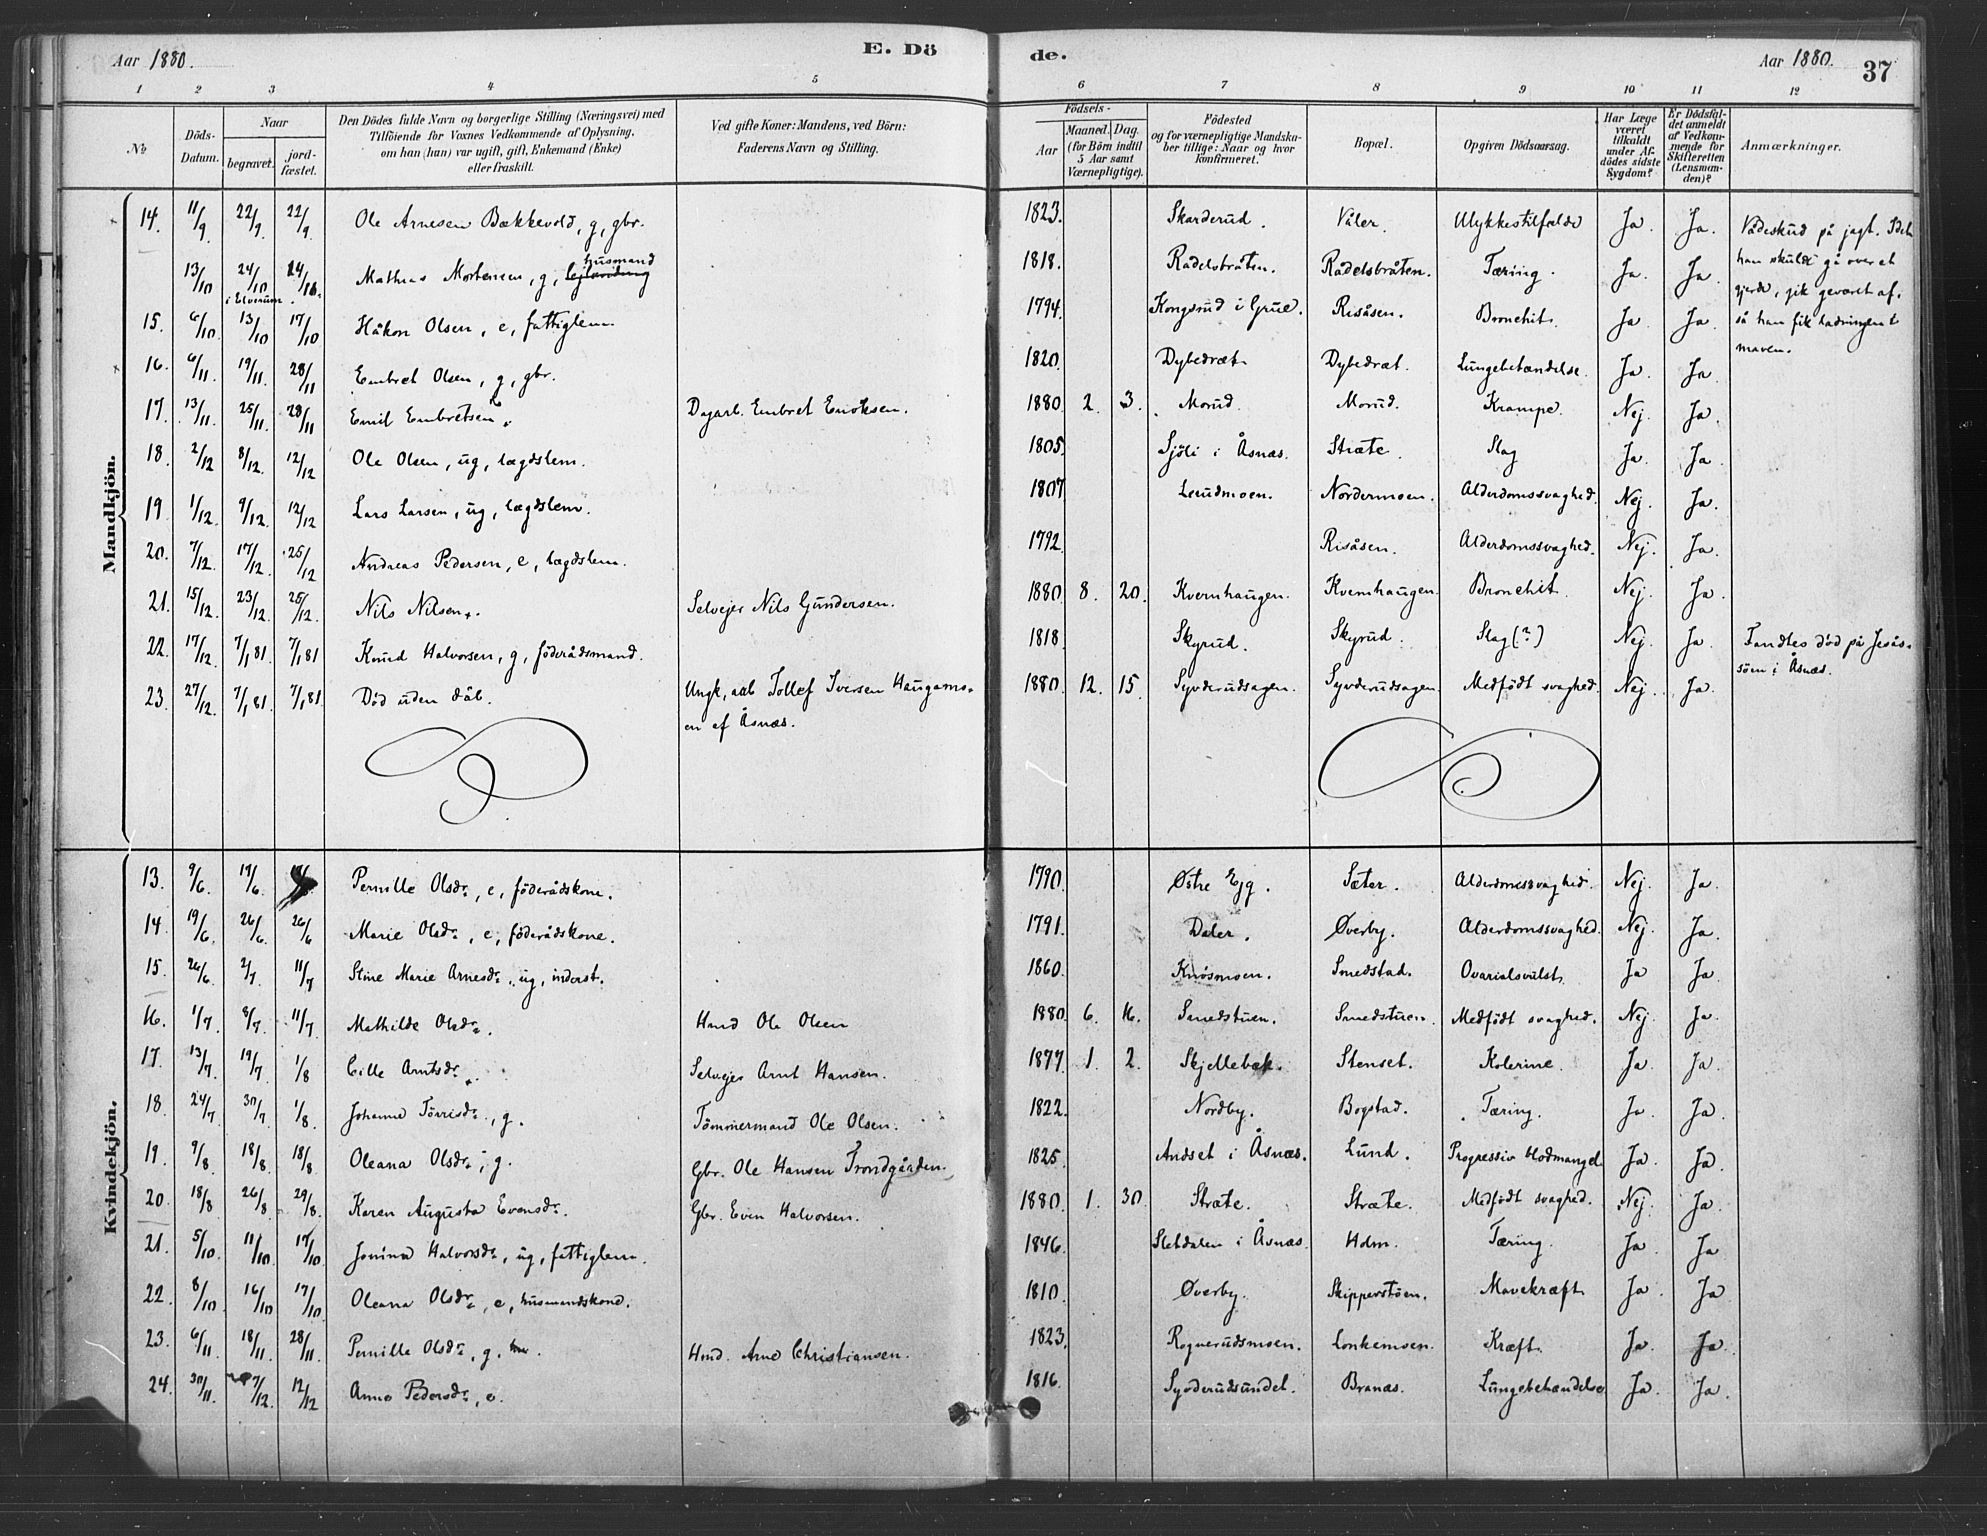 Aar 1880. E. Dö de. Aar 1880. 37
1 2 3 4 5 6 7 8 9 10 11 12
No
Döds-Datum.
Naar
begravet.
jord-fæstet.
Den Dödes fulde Navn og borgerlige Stilling (Næringsvei) med
Tilföiende for Voxnes Vedkommende af Oplysning,
om han (hun) var ugift, gift, Enkemand (Enke)
eller fraskilt.
Ved gifte Koner: Mandens, ved Börn:
Faderens Navn og Stilling.
Födsels-
Aar
Maaned. Dag.
(for Börn indtil
5 Aar samt
Værnepligtige).
Födested
og for værnepligtige Mandska-
ber tillige: Naar og hvor
konfirmeret.
Bopæl.
Opgiven Dödsaarsag.
Har Læge
været
tilkaldt
under Af-
dödes sidste
Sygdom?
Er Dödsfal-
det anmeldt
af Vedkom-
mende for
Skifteretten
(Lensman-
den)?
Anmærkninger.
Mandkjön.
14. 11/9. 22/9. 22/9. Ole Arnesen Bækkevold, g, gbr. 1823. Skarderud. Våler. Ulykkestilfælde Ja. Ja. Vådeskud på jagt. Idet
han skulde gå over et
gjerde, gik geværet af,
så han fik ladningen i
maven.
13/10 24/10 i Elverum. 24/10. Mathias Mortensen, g, husmand 1818. Rådelsbråten. Rådelsbråten. Tæring. Ja. Ja.
15. 6/10. 13/10 17/10 Håkon Olsen, e, fattiglem. 1794. Kongsrud i Grue. Risåsen. Bronchit. Ja. Ja.
16. 6/11. 19/11. 28/11 Embret Olsen, g, gbr. 1820. Dybedræt. Dybedræt. Lungebetændelse. Ja. Ja.
17. 13/11. 25/11. 28/11 Emil Embretsen. Dagarb. Embret Enoksen. 1880 2. 3. Morud. Morud. Krampe. Nej. Ja.
18. 2/12 8/12. 12/12 Ole Olsen, ug, lægdslem. 1805. Sjöli i Åsnæs. Stræte. Slag Ja. Ja.
19. 1/12. 9/12. 12/12 Lars Larsen, ug, lægdslem. 1807 Leudmoen. Nordermoen. Alderdomssvaghed. Nej. Ja.
20. 7/12. 17/12. 25/12 Andreas Pedersen, e, lægdslem. 1792. Risåsen. Alderdomssvaghed. Nej. Ja.
21. 15/12. 23/12. 25/12. Nils Nilsen. Selvejer Nils Gundersen. 1880. 8. 20. Kvernhaugen. Kvernhaugen. Bronchit. Nej. Ja.
22. 17/12. 7/1 81. 7/1 81 Knud Halvorsen, g, föderådsmand. 1818. Skyrud. Skyrud. Slag (?) Nej. Ja. Fandtes död på Jesås-
söen i Åsnæs.
23. 27/12. 7/1 81. 7/1 81. Död uden dåb. Ungk, arb Tollef Iversen Haugams-
en af Åsnæs. 1880. 12. 15. Syvderudsagen. Syvderudsagen. Medfödt svaghed. Nej. Ja.
Kvindekjön.
13. 9/6. 17/6. Pernille Olsdr., e, föderådskone. 1790. Østre Ejg. Sæter. Alderdomssvaghed. Nej. Ja.
14. 19/6. 26/6. 26/6 Marie Olsdr., e, föderådskone. 1791. Daler. Øverby. Alderdomssvaghed. Nej. Ja.
15. 26/6 2/7. 11/7 Stine Marie Arnesdr., ug, inderst. 1860. Knösmoen. Smedstad. Ovarialsvulst. Ja Ja.
16. 1/7 8/7. 11/7 Mathilde Olsdr. Hmd Ole Olsen 1880 6. 16. Smedstuen. Smedstuen. Medfödt svaghed. Nej. Ja.
17. 13/7. 19/7 1/8 Cille Arntsdr. Selvejer Arnt Hansen. 1877 1. 2. Skjellebæk. Stenset. Kolerine. Ja. Ja.
18. 24/7. 30/7 1/8 Johanne Törrisdr., g. Tömmermand Ole Olsen. 1822. Nordby. Bogstad. Tæring. Ja. Ja.
19. 9/8. 18/8. 18/8. Oleana Olsdr., g. Gbr. Ole Hansen Trondgården. 1825. Andset i Åsnæs. Lund. Progressiv blodmangel Ja. Ja.
20. 18/8 26/8 29/8. Karen Augusta Evensdr. Gbr. Even Halvorsen. 1880. 1. 30. Stræte. Stræte. Medfödt svaghed. Nej. Ja.
21. 5/10. 11/10 17/10 Jonina Halvorsdr., ug, fattiglem. 1846. Sletdalen i Åsnæs. Holm. Tæring. Ja. Ja
22. 8/10. 16/10 17/10 Oleana Olsdr., e, husmandskone. 1810. Øverby. Skipperstöen. Mavekræft Ja. Ja
23. 6/11. 18/11. 28/11. Pernille Olsdr., g. Hmd. Arne Christiansen. 1823. Rognerudsmoen. Lonkemoen. Kræft. Ja. Ja.
24. 30/11. 7/12. 12/12 Anne Pedersdr., e. 1816. Syvderudsundet. Branæs. Lungebetændelse Ja. Ja.